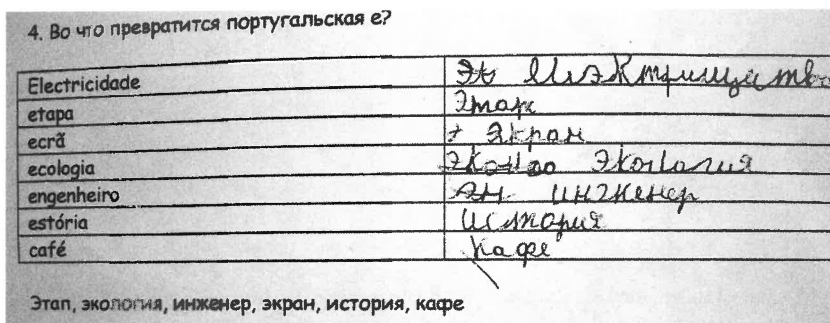 4. Во что превратится португальская е?
Electricidade Эв Илэктрицество
etapa Этап
ecrã э Экран
ecologia Эколо Экология
engenheiro Эн инженер
estória История
café Кафе
Этап, экология, инженер, экран, история, кафе